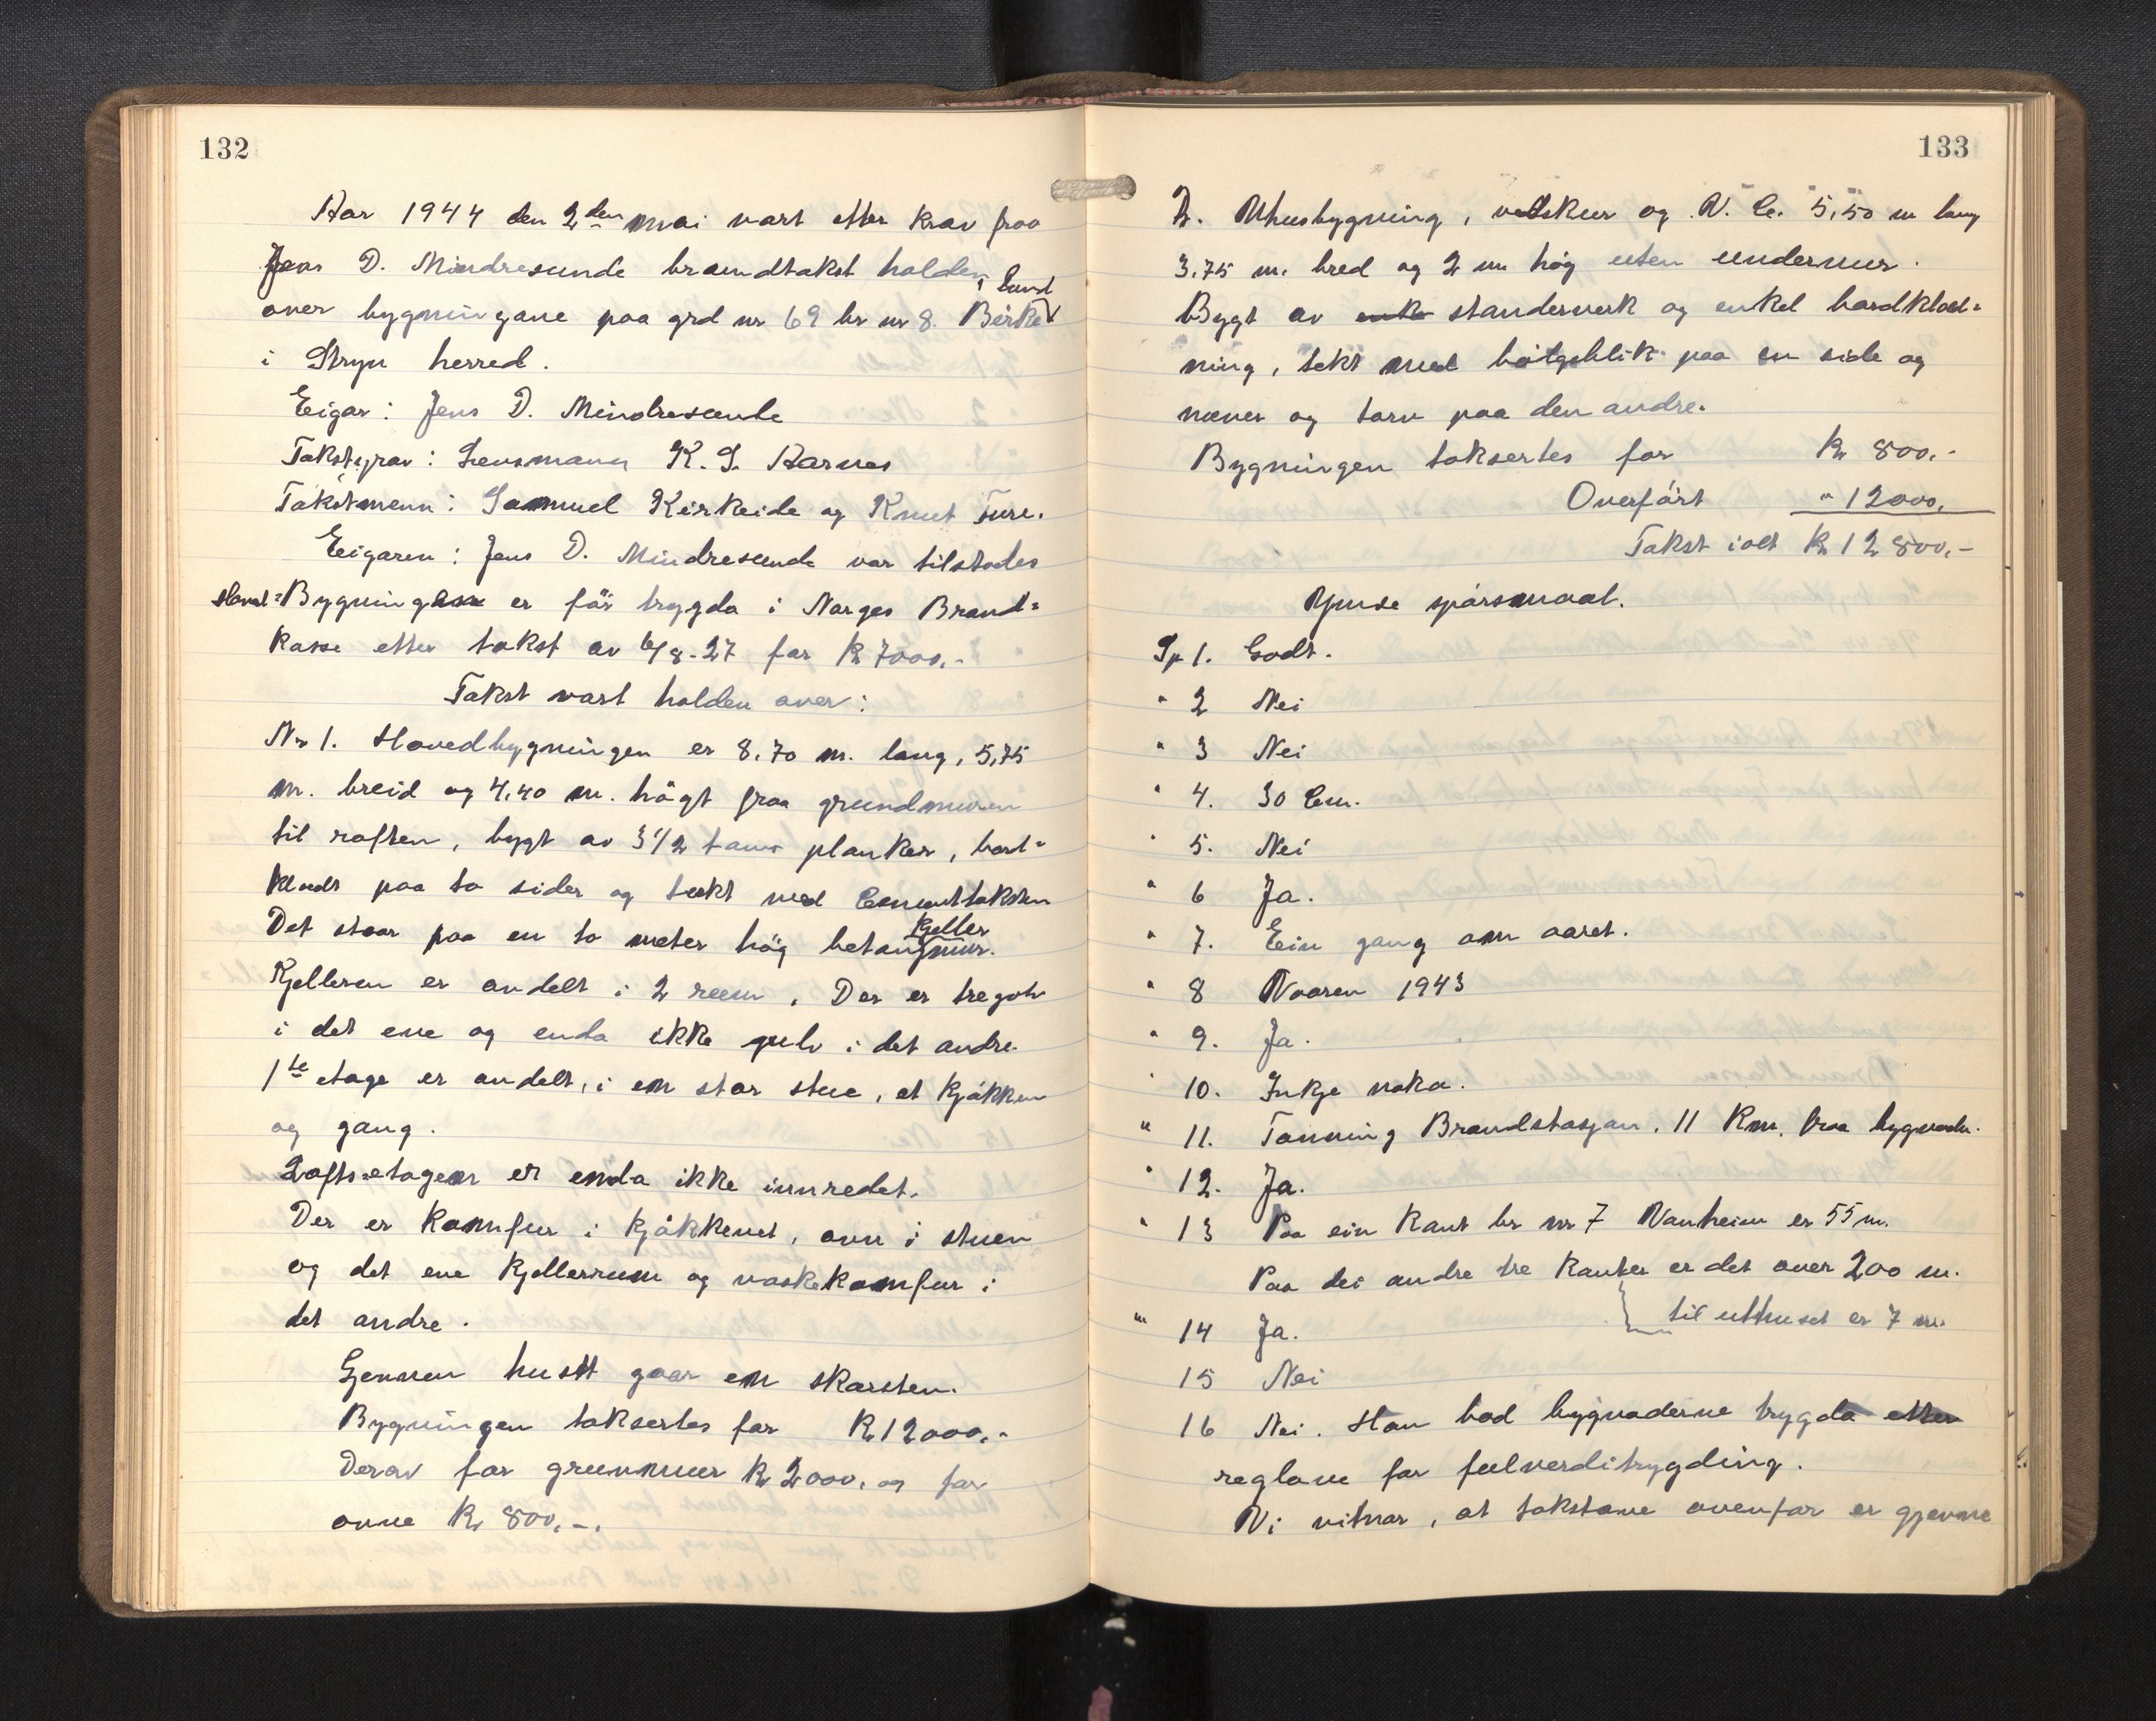 132
Aar 1944 den 2den mai vart etter krav fraa
Jens D. Mindresunde brandtakst halden
over bygningane paa grd nr 69 br nr 8. Birkelund
i Stryn herred.
Eigar: Jens D. Mindresunde
Takstgrav: Lensmann K. S. Aarnes
Takstmenn: Samuel Kirkeide og Knut Ture.
Eigaren: Jens D. Mindresunde var tilstades
Hoved=Bygningen er för trygda i Norges Brand=
kasse etter takst av 6/8-27 for Kr 7000,-
Takst vart halden over:
Nr 1. Hovedbygningen er 8,70 m. lang, 5,75
m. breid og 4,40 m. högt fraa grundmuren
til raften, bygt av 3 1/2 toms planker, bord=
klædt paa to sider og tækt med Cementtaksten
Det staar paa en to meter hög betongkjellermur.
Kjelleren er andelt i 2 reem. Der er tregolv
i det ene og enda ikke gulv i det andre.
1ste etage er andelt, i en stor stue, et kjökken
og gang.
Loftsetagen er enda ikke innredet.
Der er komfur i kjökkenet, ovn i stuen
og det ene kjellerrum og vaskekomfur i
det andre.
Gjennen huset gaar en skorsten.
Bygningen taksertes for Kr 12000,-
Derav for grunnmur Kr 2000, og for
ovne Kr 800,-.
133
2. Uthusbygning, vedskur og W. C. 5,50 m lang
3,75 m. bred og 2 m hög uten undermur.
Bygt av enk standerverk og enkel bordklæd=
ning, tekt med bölgeblik paa en side og
næver og torv paa den andre.
Bygningen taksertes for Kr 800,-
Overfört " 12000,
Takst ialt Kr 12800,-
Ymse spörsmaal.
Sp 1. Godt.
" 2 Nei
" 3 Nei
" 4. 30 Cm.
" 5. Nei
" 6 Ja.
" 7. Ein gang om aaret.
" 8 Vaaren 1943
" 9. Ja.
" 10. Inkje noko.
" 11. Tonning Brandstasjon. 11 Km. fraa bygnadn.
" 12. Ja.
" 13 Paa ein kant br nr 7 Vanheim er 55 m.
Paa dei andre tre kanter er det over 200 m.
til uthuset er 7 m.
" 14 Ja.
15 Nei
16 Nei. Han bad bygnaderne trygda etter
reglane for fulverditrygding.
Vi vitnar, at takstane ovenfor er gjevne